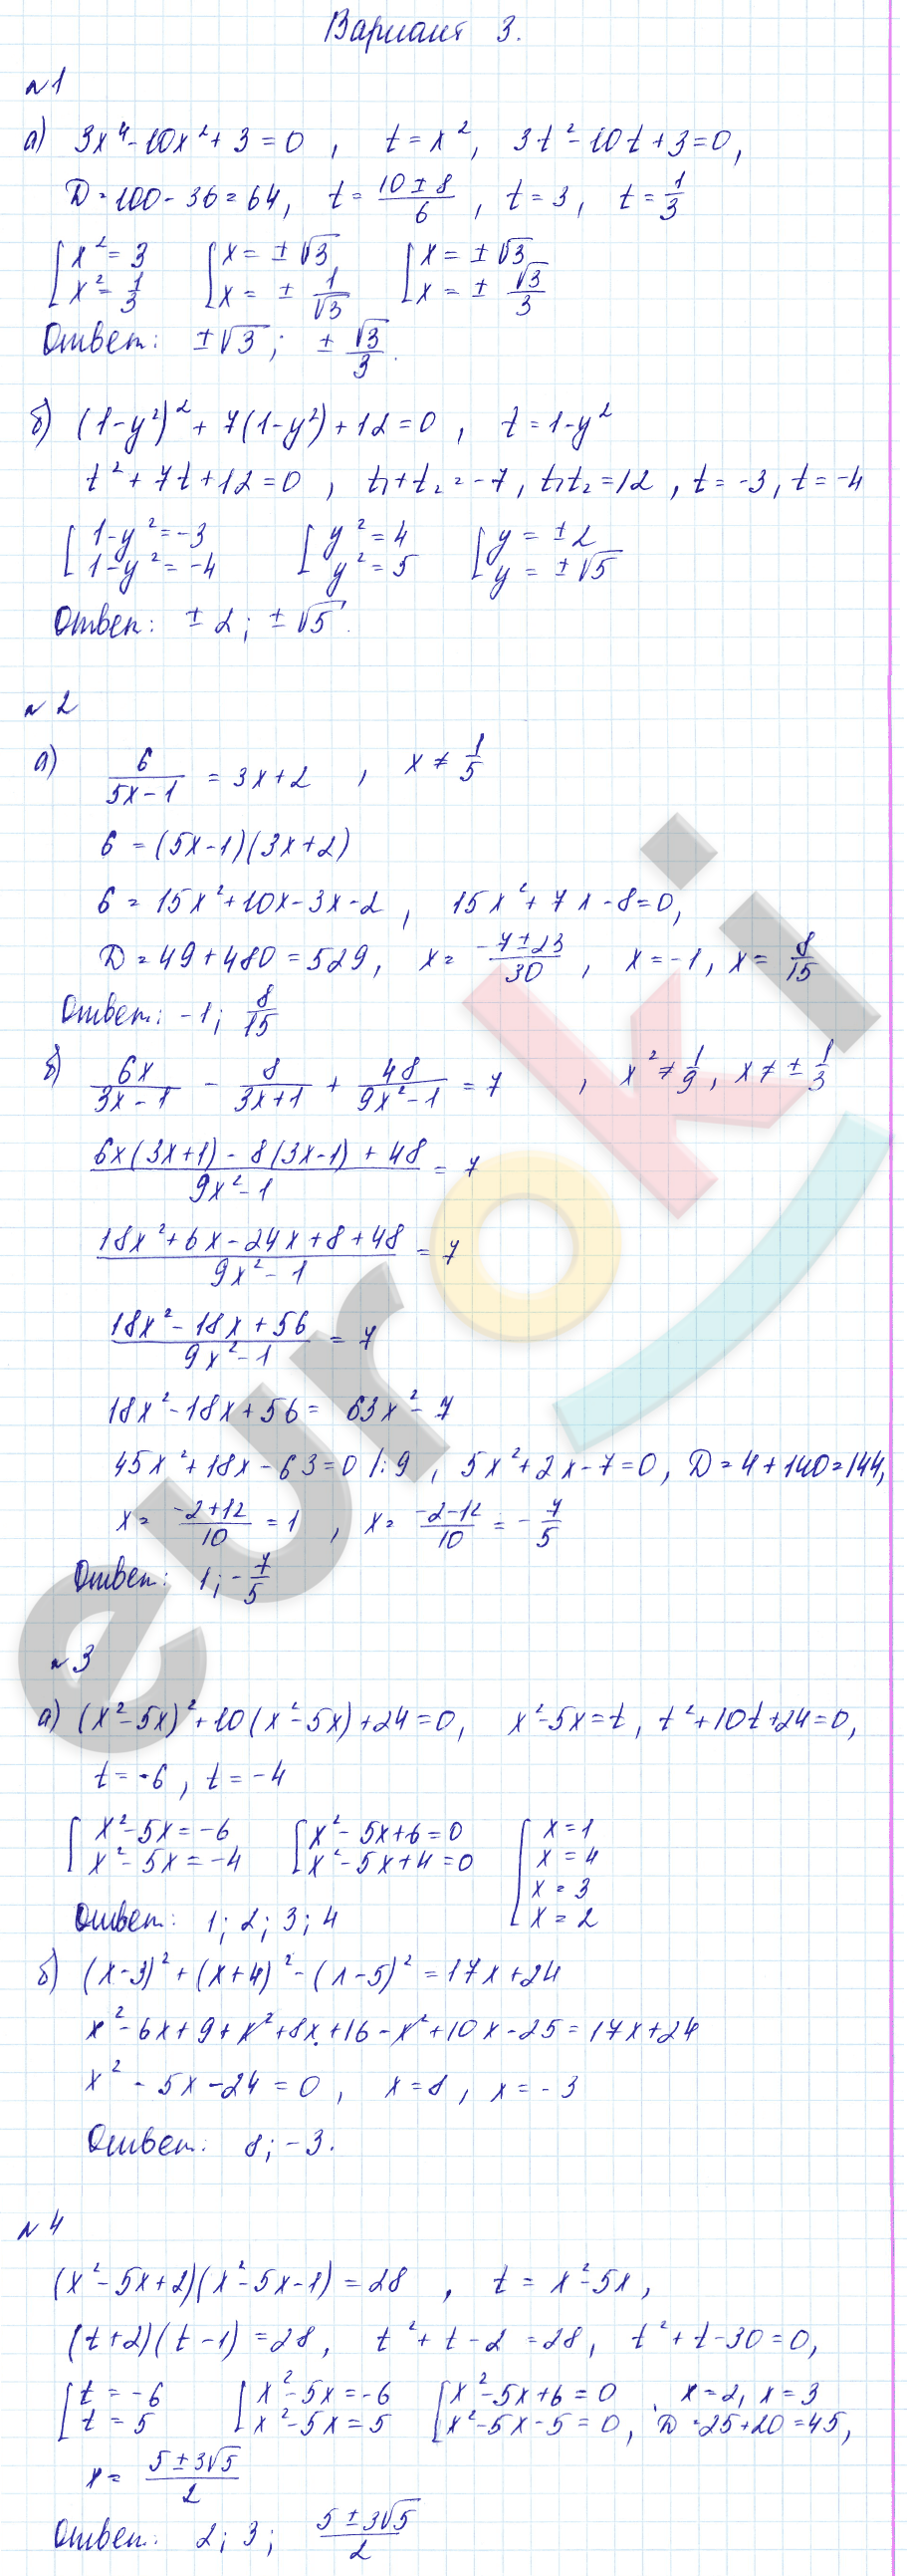 Вариант 3.
№1
а) 3x⁴-10x²+3=0, t=x², 3t²-10t+3=0,
D=100-36=64, t=(10±8)/6, t=3, t=1/3
[x²=3 [x=±√3 [x=±√3
[x²=1/3 [x=±1/√3 [x=±√3/3
Ответ: ±√3; ±√3/3.
б) (1-y²)²+7(1-y²)+12=0, t=1-y²
t²+7t+12=0, t₁+t₂=-7, t₁t₂=12, t=-3, t=-4
[1-y²=-3 [y²=4 [y=±2
[1-y²=-4 [y²=5 [y=±√5
Ответ: ±2; ±√5.
№2
а) 6/(5x-1)=3x+2, x≠1/5
6=(5x-1)(3x+2)
6=15x²+10x-3x-2, 15x²+7x-8=0,
D=49+480=529, x=(-7±23)/30, x=-1, x=8/15
Ответ: -1; 8/15
б) 6x/(3x-1) - 8/(3x+1) + 48/(9x²-1) = 7, x²≠1/9, x≠±1/3
(6x(3x+1)-8(3x-1)+48)/(9x²-1)=7
(18x²+6x-24x+8+48)/(9x²-1)=7
(18x²-18x+56)/(9x²-1)=7
18x²-18x+56=63x²-7
45x²+18x-63=0 |:9, 5x²+2x-7=0, D=4+140=144,
x=(-2+12)/10=1, x=(-2-12)/10=-7/5
Ответ: 1; -7/5
№3
а) (x²-5x)²+10(x²-5x)+24=0, x²-5x=t, t²+10t+24=0,
t=-6, t=-4
[x²-5x=-6 [x²-5x+6=0 [x=1
[x²-5x=-4 [x²-5x+4=0 x=4
x=3
Ответ: 1; 2; 3; 4 x=2
б) (x-3)²+(x+4)²-(x-5)²=17x+24
x²-6x+9+x²+8x+16-x²+10x-25=17x+24
x²-5x-24=0, x=8, x=-3
Ответ: 8; -3.
№4
(x²-5x+2)(x²-5x-1)=28, t=x²-5x,
(t+2)(t-1)=28, t²+t-2=28, t²+t-30=0,
[t=-6 [x²-5x=-6 [x²-5x+6=0, x=2, x=3
[t=5 [x²-5x=5 [x²-5x-5=0, D=25+20=45,
x=(5±3√5)/2
Ответ: 2; 3; (5±3√5)/2
euroki